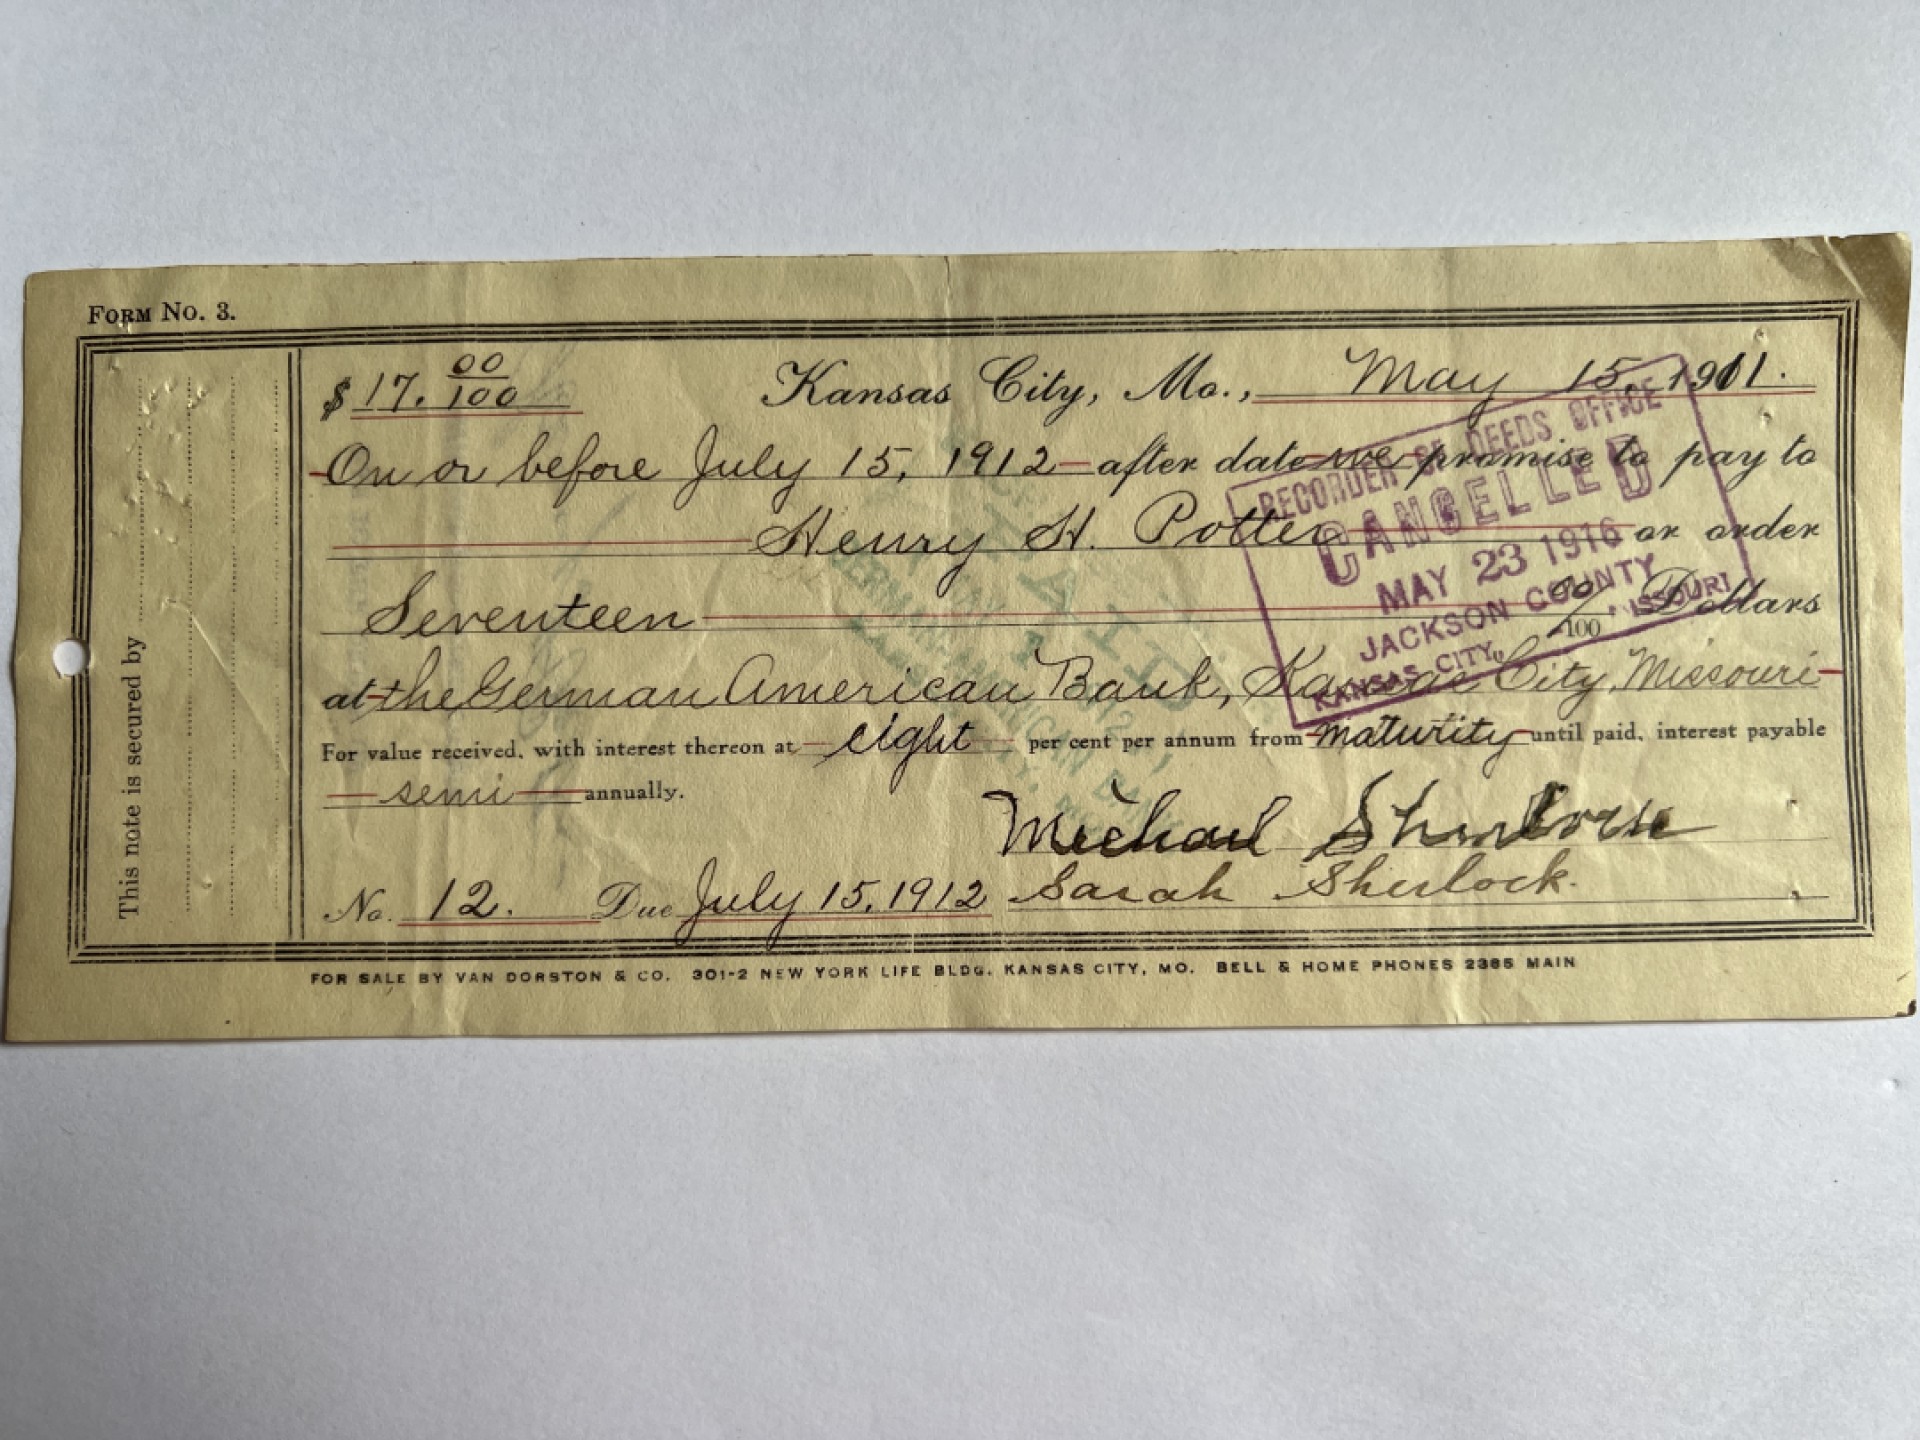 FORM No. 3.
This note is secured by
$ 17. 00/100 Kansas City, Mo., May 15, 1911.
On or before July 15, 1912 after date we promise to pay to
Henry H. Potter or order
Seventeen 00/100 Dollars
at the German American Bank, Kansas City, Missouri
For value received, with interest thereon at eight per cent per annum from maturity until paid, interest payable
semi annually.
Michael
Sarah Sherlock.
No. 12. Due July 15, 1912
RECORDER OF DEEDS OFFICE
CANCELLED
MAY 23 1916
JACKSON COUNTY
KANSAS CITY, MISSOURI
PAID
GERMAN AMERICAN BANK
FOR SALE BY VAN DORSTON & CO. 301-2 NEW YORK LIFE BLDG. KANSAS CITY, MO. BELL & HOME PHONES 2385 MAIN